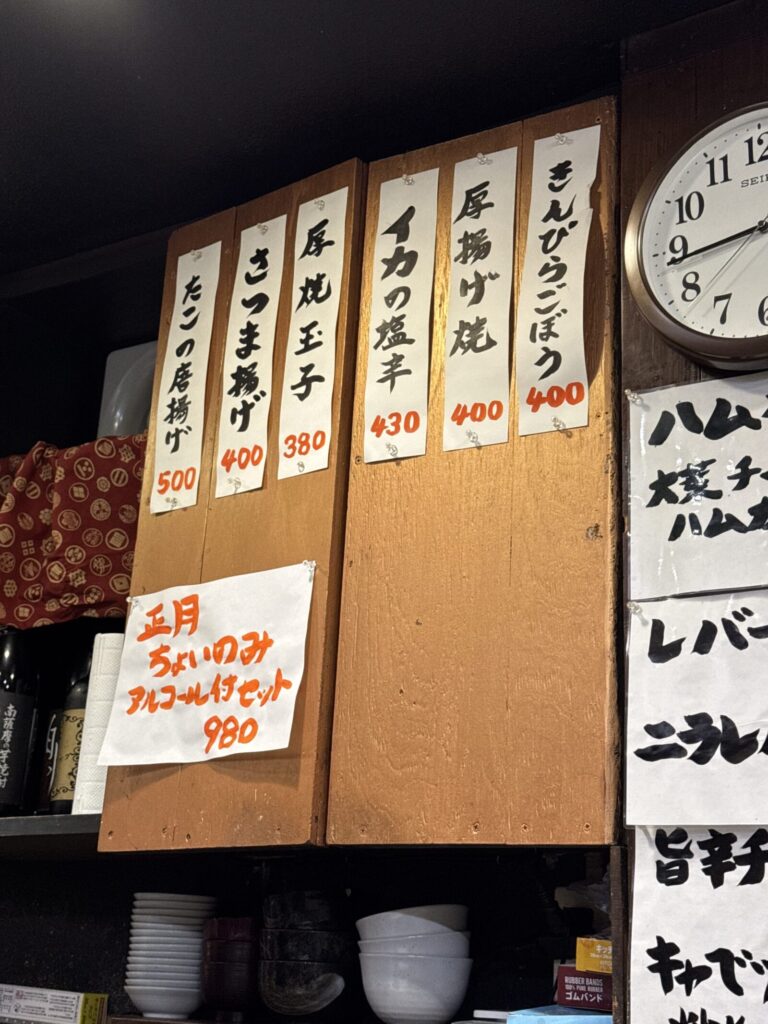 きんぴらごぼう
400
厚揚げ焼
400
イカの塩辛
430
厚焼玉子
380
さつま揚げ
400
たこの唐揚げ
500
正月
ちょいのみ
アルコール付セット
980
12
11
10
9
8
7
6
SEIK
ハム
大葉チー
ハムカ
レバー
ニラレバ
旨辛チ
キャベツ
南薩摩の芋焼酎
RUBBER BANDS
100% PURE RUBBER
ゴムバンド
キッチ